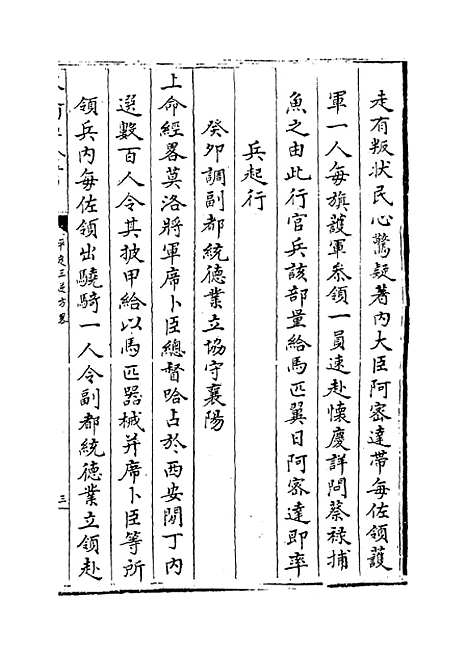 走有叛狀民心驚疑著內大臣阿密達帶每佐領護
軍一人每旗護軍叅領一員速赴懷慶詳問蔡祿捕
魚之由此行官兵該部量給馬匹翼日阿密達即率
兵起行
癸卯調副都統德業立協守襄陽
上命經畧莫洛將軍席卜臣總督哈占於西安閒丁內
選數百人令其披甲給以馬匹器械并席卜臣等所
領兵內每佐領出驍騎一人令副都統德業立領赴
平定三逆方畧
三